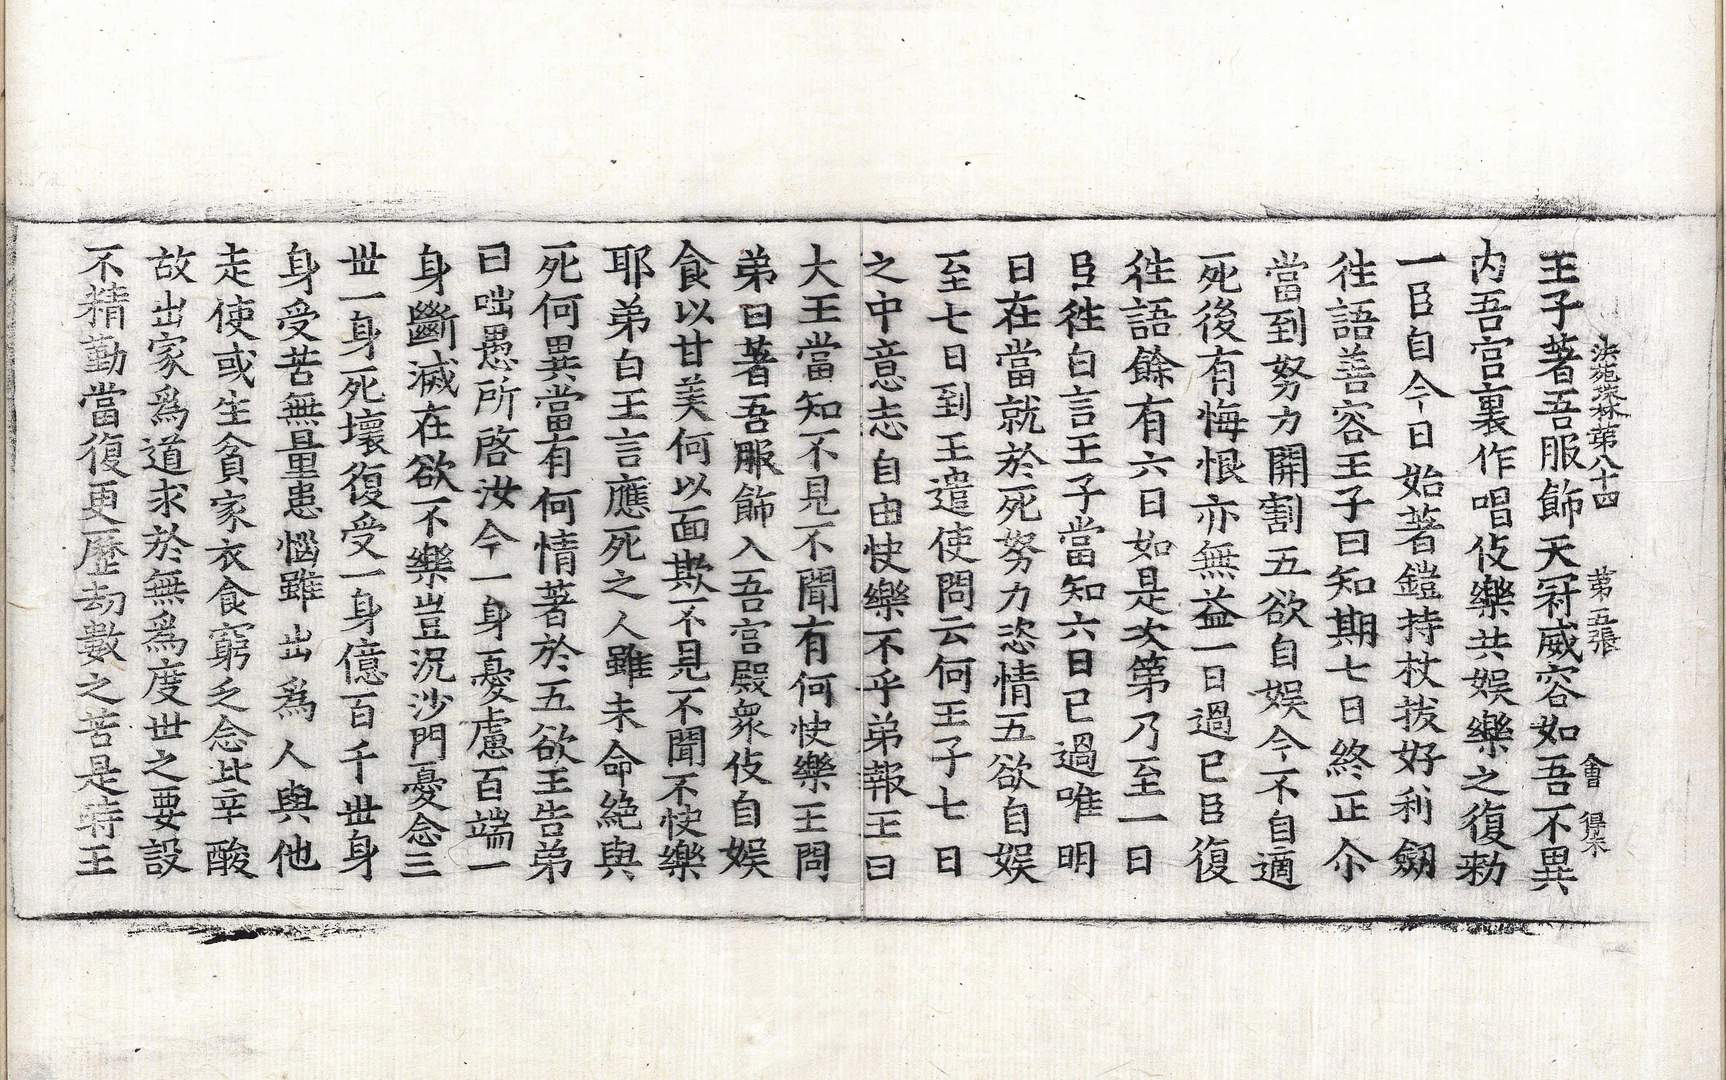 法苑珠林第八十四　第五張　會　得宋
王子著吾服飾天冠威容如吾不異
内吾宮裏作唱伎樂共娛樂之復勑
一臣自今日始著鎧持杖拔好利劒
往語善容王子曰知期七日終正尒
當到努力開割五欲自娛今不自適
死後有悔恨亦無益一日過已臣復
往語餘有六日如是次第乃至一日
臣往白言王子當知六日已過唯明
日在當就於死努力恣情五欲自娛
至七日到王遣使問云何王子七日
之中意志自由快樂不乎弟報王曰
大王當知不見不聞有何快樂王問
弟曰著吾服飾入吾宮殿衆伎自娛
食以甘美何以面欺不見不聞不快樂
耶弟白王言應死之人雖未命絶與
死何異當有何情著於五欲王告弟
曰咄愚所啓汝今一身憂慮百端一
身斷滅在欲不樂豈況沙門憂念三
世一身死壞復受一身億百千世身
身受苦無量患惱雖出爲人與他
走使或生貧家衣食窮乏念此辛酸
故出家爲道求於無爲度世之要設
不精勤當復更歷劫數之苦是時王